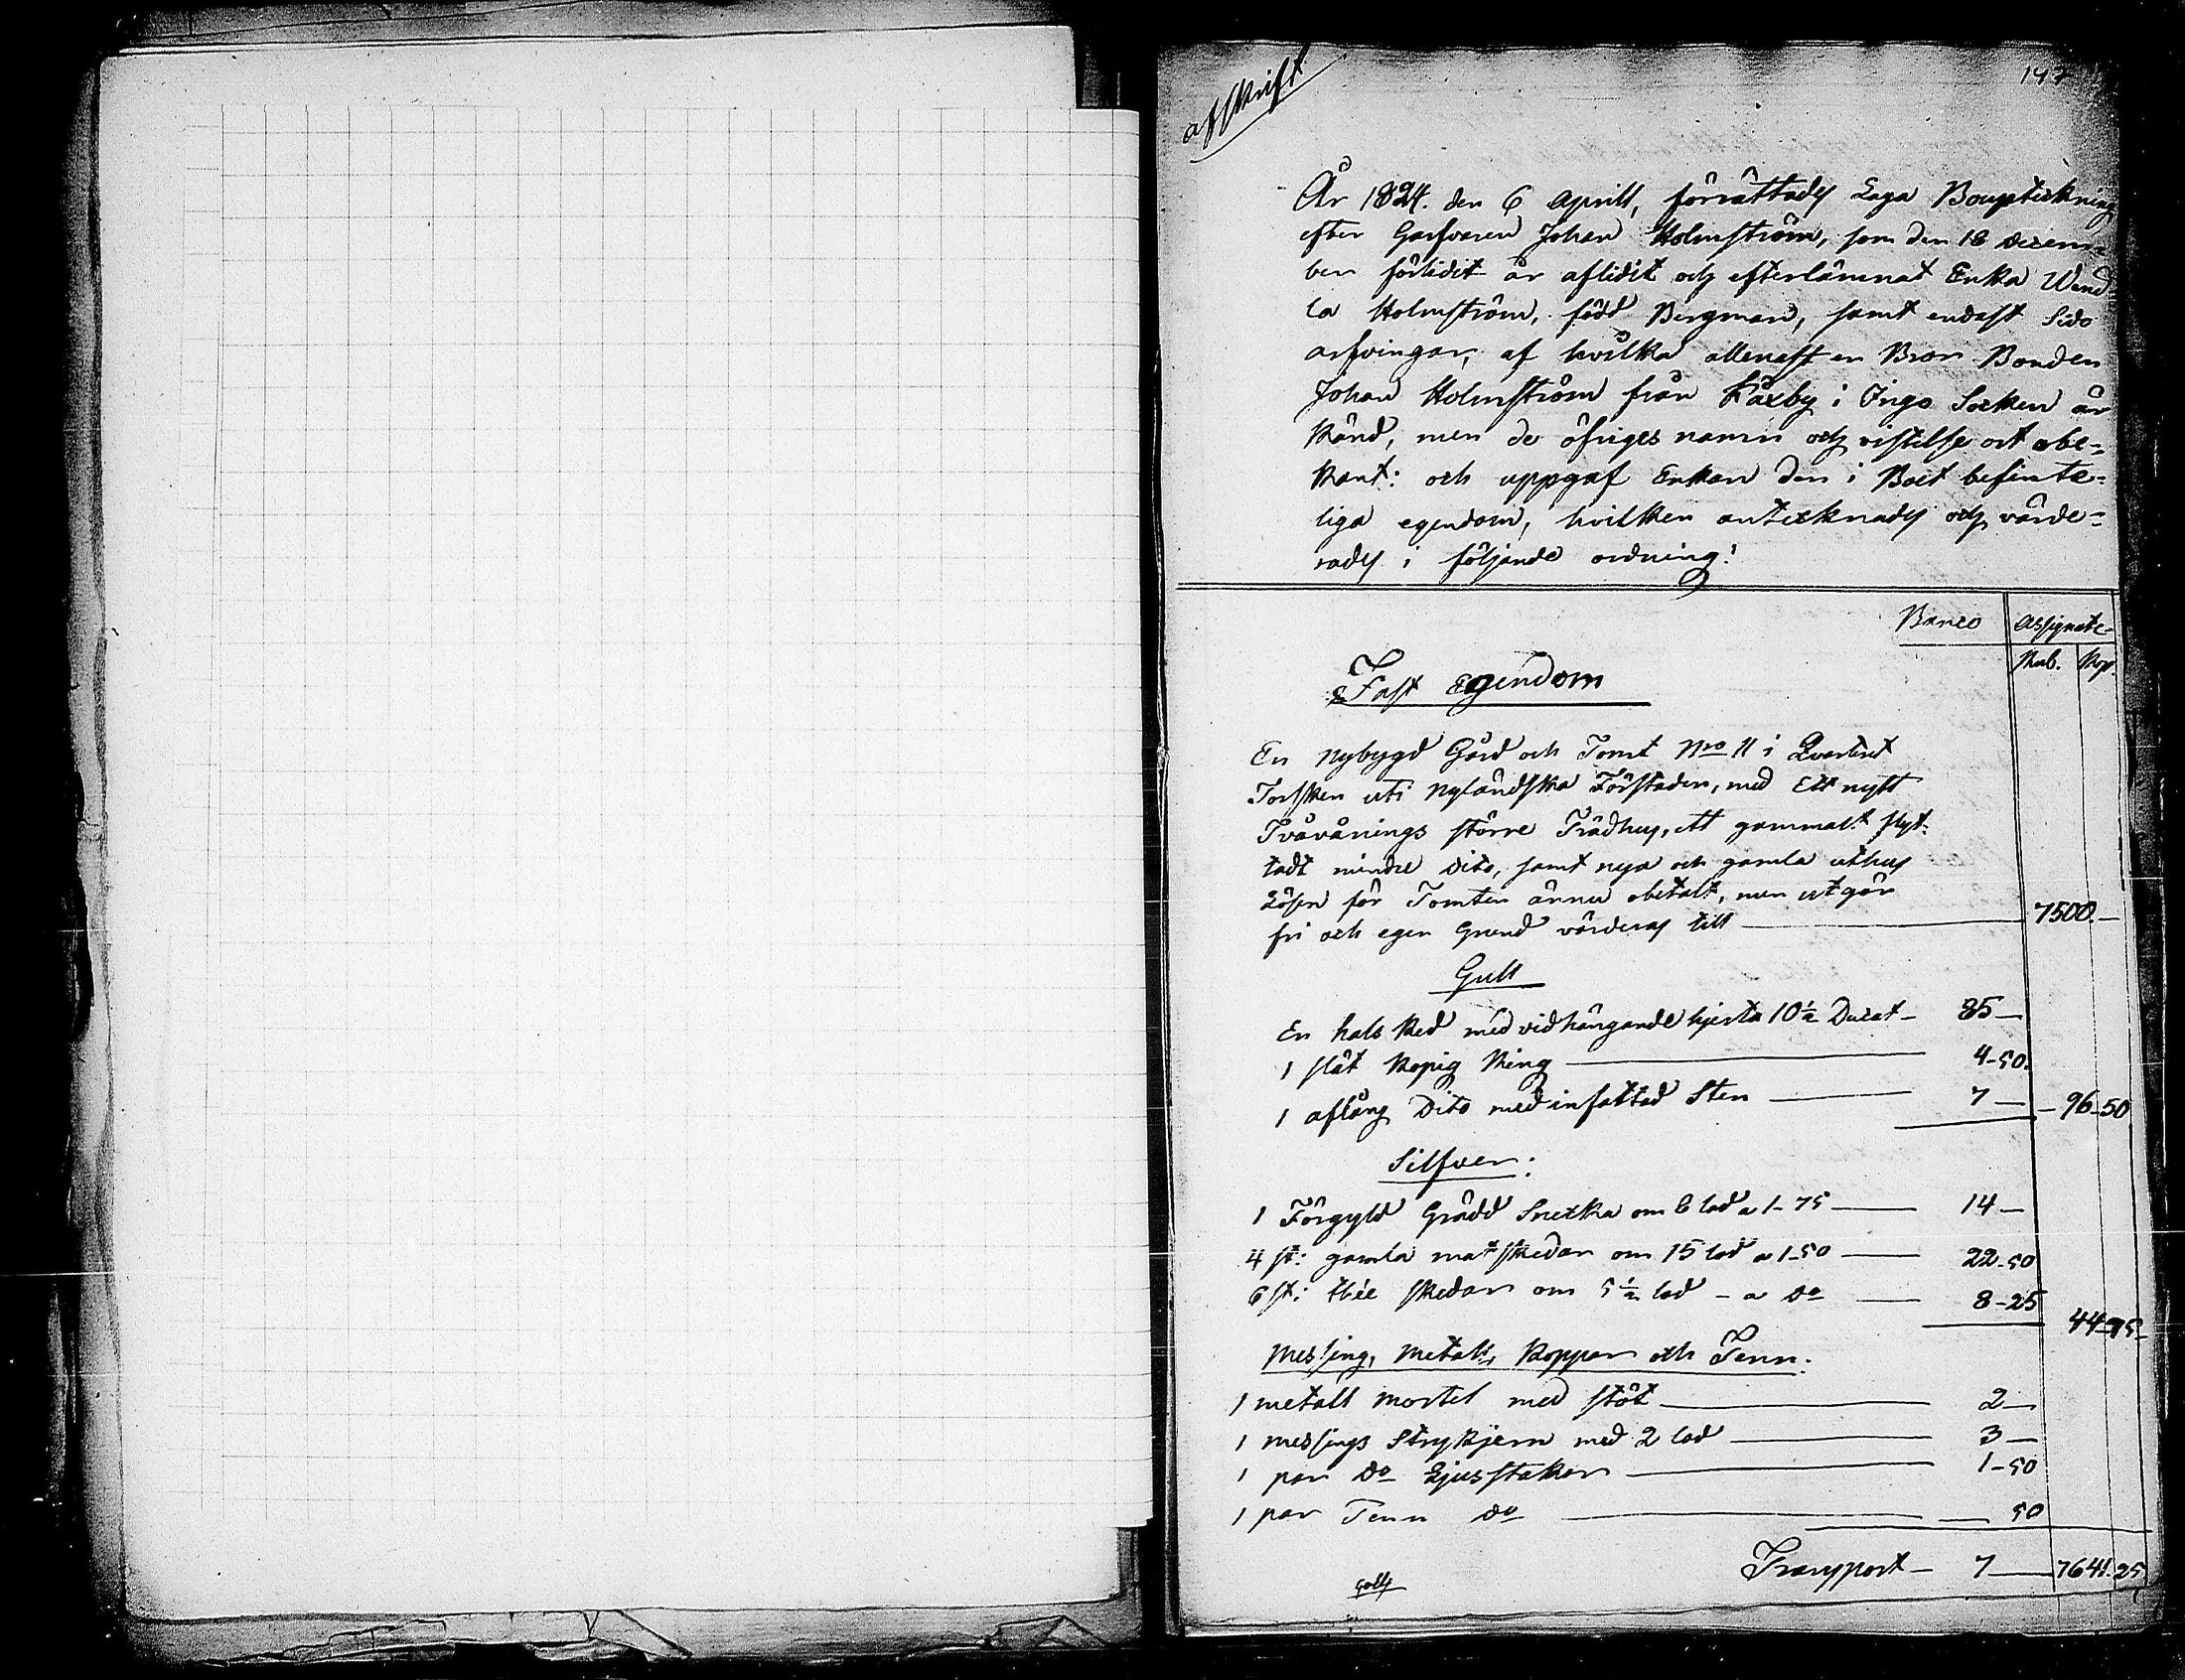 147
afskrift
År 1824. den 6 Aprill, förrättades Laga Bouptekning
efter Garfvaren Johan Holmström, som den 18 decem=
ber förlidit år aflidit och efterlämnat Enka Wend=
la Holmström, född Bergman, samt endast Sido
arfvingar, af hvilka allenast en Bror Bonden
Johan Holmström från Täxby i Ingo Socken är
känd, men de öfriges namn och vistelse ort obe=
kant: och uppgaf Enkan den i Boet befinte=
liga egendom, hvilken antecknades och värde=
rades i följande ordning:
Banco Assignate
Rub. Kop.
Fast Egendom
En nybygd Gård och Tomt Nro 11 i Qvarteret
Torsken uti Nyländska Förstaden, med Ett nytt
Tvåvånings större Trädhus, ett gammalt flyt=
tadt mindre dito, samt nya och gamla uthus
Lösen för Tomten ännu obetalt, men utgör
fri och egen Grund värderas till 7500.—
Gull
En hals ked med vidhängande hjerta 10½ Ducat — 85 —
1 slät kopig Ring 4-50.
1 aflång Dito med infattad Sten 7 — 96-50
Silfver:
1 Förgyld Grädd Snecka om 8 lod a 1-75 14 —
4 st: gamla mat skedar om 15 lod a 1-50 22-50
6 st: thée skedar om 5½ lod - a do 8-25
44-75
Messing, Metall, Koppar och Tenn.
1 metall Mortel med stöt 2 —
1 messings Strykjern med 2 lod 3 —
1 par do Ljusstakar 1-50
1 par Tenn do 50
Transport — 7 — 7641.25